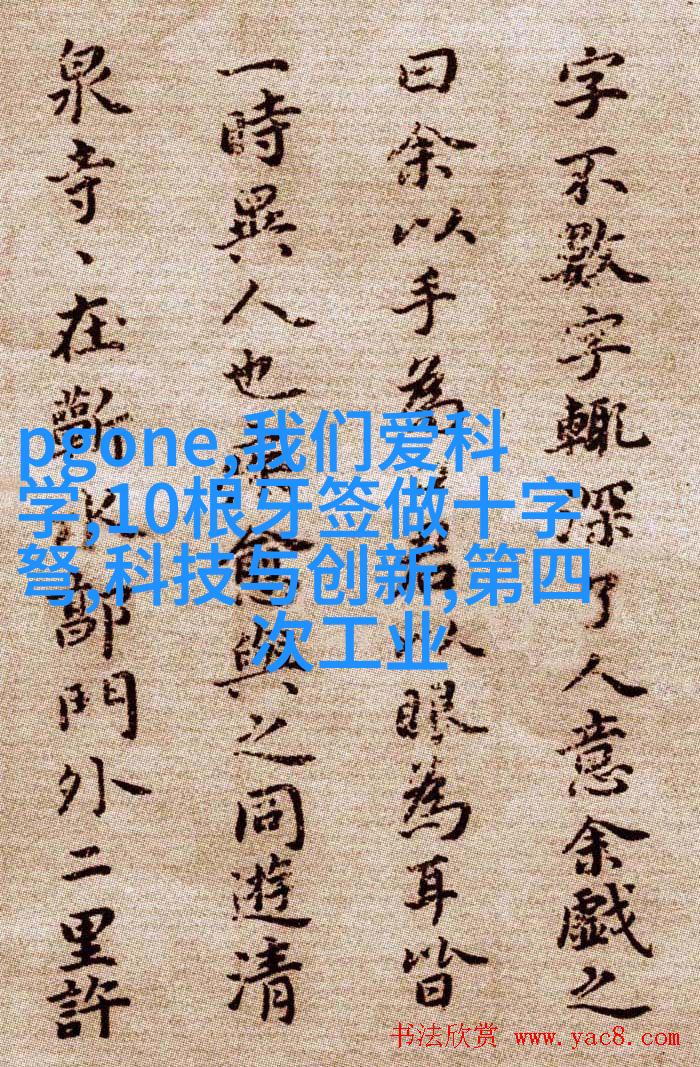 字不數字輙深了人意余戲之
曰余以手為以眼為耳皆
一時異人也愈與之同遊清
泉寺、在蘄水郭門外二里許
pgone,我们爱科
学,10根牙签做十字
弩,科技与创新,第四
次工业
书法欣赏 www.yac8.com